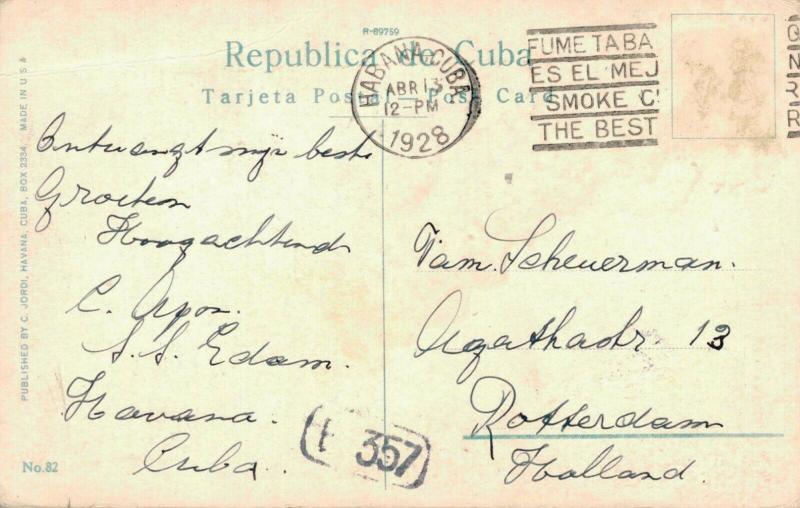 R-69759
Republica de Cuba
Tarjeta Postal — Post Card
HABANA, CUBA
ABR 13
12-PM
1928
FUME TABA
ES EL MEJ
SMOKE C
THE BEST
Q
N
R
R
PUBLISHED BY C. JORDI, HAVANA, CUBA, BOX 2334. MADE IN U S A
Ontvangt mijn beste
Groeten
Hoogachtend
C. Apon.
S. S. Edam.
Havana.
Cuba.
No. 82
357
Fam. Scheuerman.
Agathastr. 13
Rotterdam
Holland.